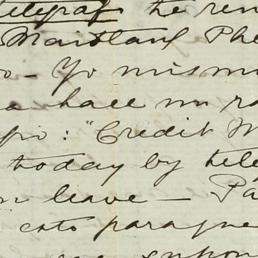 telegraf he ren
Maitland Phe
o - Yo mismo
a hace un ra
pio: "Credit
today by tele
leave - Pa
esto para que